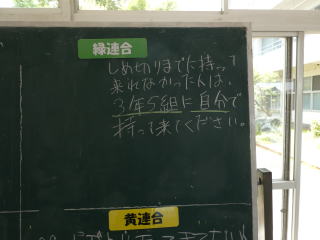 緑連合
しめ切りまでに持って
来れなかった人は、
3年5組に自分で
持って来てください。
黄連合